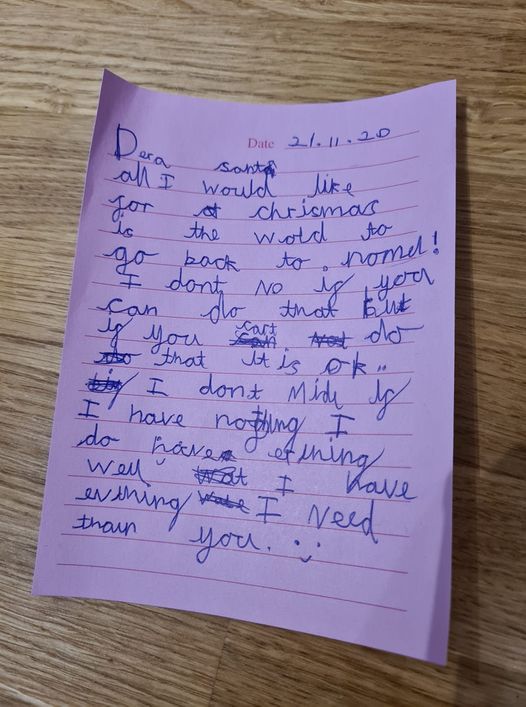 Date 21.11.20
Dera santa
all I would like
for chrismas
is the wold to
go back to nomel!
I dont no if you
can do that but
if you cart do
that it is ok..
I dont Midu if
I have nothing I
do have ething
well I have
evething I Need
than you. :)